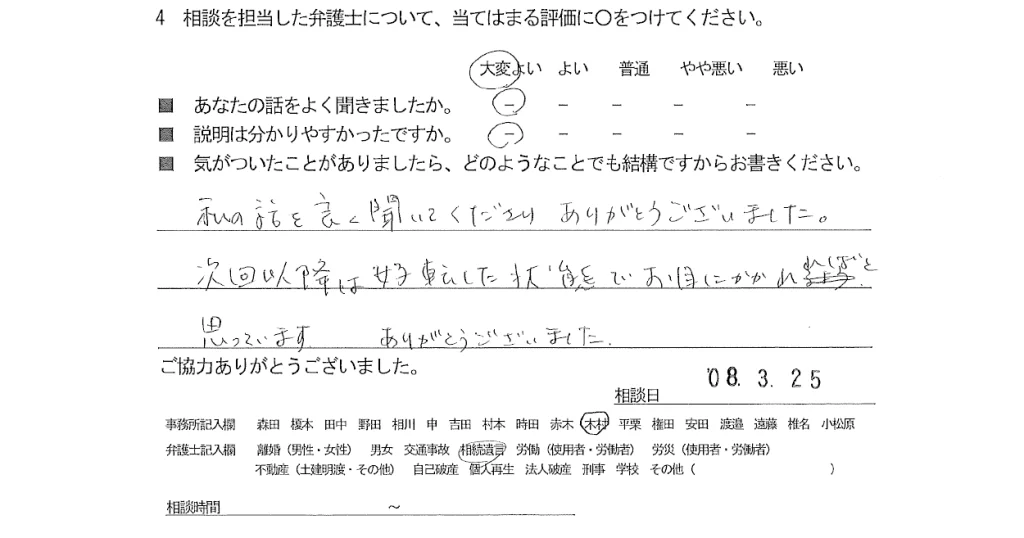 4 相談を担当した弁護士について、当てはまる評価に〇をつけてください。
大変よい よい 普通 やや悪い 悪い
■ あなたの話をよく聞きましたか。 － － － － －
■ 説明は分かりやすかったですか。 － － － － －
■ 気がついたことがありましたら、どのようなことでも結構ですからお書きください。
私の話を良く聞いてくださり ありがとうございました。
次回以降は好転した状態でお目にかかれればと
思っています ありがとうございました.
ご協力ありがとうございました。
相談日 '08. 3. 25
事務所記入欄 森田 榎本 田中 野田 相川 申 吉田 村本 時田 赤木 木村 平栗 権田 安田 渡邉 遠藤 椎名 小松原
弁護士記入欄 離婚（男性・女性） 男女 交通事故 相続遺言 労働（使用者・労働者） 労災（使用者・労働者）
不動産（土建明渡・その他） 自己破産 個人再生 法人破産 刑事 学校 その他（ ）
相談時間 ～